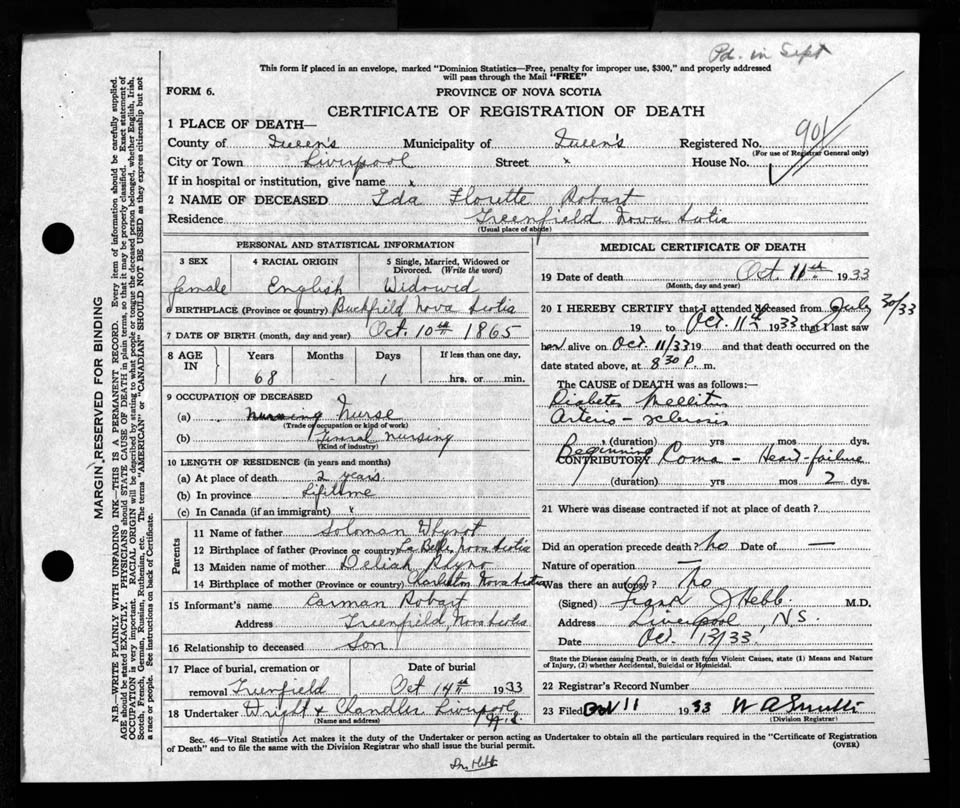 Pd. in Sept
This form if placed in an envelope, marked "Dominion Statistics—Free, penalty for improper use, $300," and properly addressed
will pass through the Mail "FREE"
FORM 6.
PROVINCE OF NOVA SCOTIA
CERTIFICATE OF REGISTRATION OF DEATH
1 PLACE OF DEATH—
County of Queen's Municipality of Queen's Registered No. 901
(For use of Registrar General only)
City or Town Liverpool Street x House No.
If in hospital or institution, give name x
2 NAME OF DECEASED Ida Florette Robart
Residence Greenfield Nova Scotia
(Usual place of abode)
PERSONAL AND STATISTICAL INFORMATION
3 SEX 4 RACIAL ORIGIN 5 Single, Married, Widowed or
Divorced. (Write the word)
female English Widowed
6 BIRTHPLACE (Province or country) Buckfield Nova Scotia
7 DATE OF BIRTH (month, day and year) Oct. 10th 1865
8 AGE IN Years Months Days If less than one day,
68 - 1 hrs. or min.
9 OCCUPATION OF DECEASED
(a) Nurse
(Trade or occupation or kind of work)
(b) nursing
(Kind of industry)
10 LENGTH OF RESIDENCE (in years and months)
(a) At place of death 2 years
(b) In province Lifetime
(c) In Canada (if an immigrant) x
Parents
11 Name of father Soloman Whynot
12 Birthplace of father (Province or country) La Belle, Nova Scotia
13 Maiden name of mother Deliah Rhyno
14 Birthplace of mother (Province or country) Charleston, Nova Scotia
15 Informant's name Carman Robart
Address Greenfield, Nova Scotia
16 Relationship to deceased Son
17 Place of burial, cremation or Date of burial
removal Greenfield Oct 14th 1933
18 Undertaker Wright & Chandler Liverpool
N.S.
(Name and address)
MEDICAL CERTIFICATE OF DEATH
19 Date of death Oct. 11th 1933
(Month, day and year)
20 I HEREBY CERTIFY that I attended deceased from July 30/33
19 to Oct. 11th 1933 that I last saw
her alive on Oct 11/33 19 and that death occurred on the
date stated above, at 8 30 P. m.
The CAUSE of DEATH was as follows:
Diabetes Mellitus
Arterio-sclerosis
(duration) yrs mos dys.
CONTRIBUTORY Beginning Coma - Heart-failure
(duration) yrs mos 2 dys.
21 Where was disease contracted if not at place of death?
Did an operation precede death? No Date of —
Nature of operation —
Was there an autopsy? No
(Signed) J Hebb. M.D.
Address Liverpool, N.S.
Date Oct. 13/33
State the Disease causing Death, or in death from Violent Causes, state (1) Means and Nature
of Injury, (2) whether Accidental, Suicidal or Homicidal.
22 Registrar's Record Number
23 Filed 11 1933 W A
(Division Registrar)
Sec. 46—Vital Statistics Act makes it the duty of the Undertaker or person acting as Undertaker to obtain all the particulars required in the "Certificate of Registration
of Death" and to file the same with the Division Registrar who shall issue the burial permit. (OVER)
Dr. Hebb
MARGIN RESERVED FOR BINDING
N.B.—WRITE PLAINLY WITH UNFADING INK—THIS IS A PERMANENT RECORD. Every item of information should be carefully supplied.
AGE should be stated EXACTLY. PHYSICIANS should STATE CAUSE OF DEATH in plain terms, so that it may be properly classified. Exact statement of
OCCUPATION is very important. RACIAL ORIGIN will be described by stating to what people or tongue the deceased person belonged, whether English, Irish,
Scotch, French, German, Russian, Ruthenian, etc. The terms "AMERICAN" or "CANADIAN" SHOULD NOT BE USED as they express citizenship but not
a race or people. See instructions on back of Certificate.